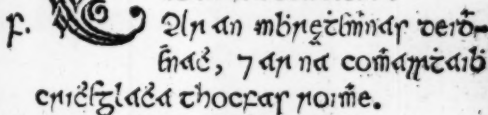 f. Ar an mbreṫeaṁnas deiḋ-
eanaċ, ⁊ ar na coṁarṫaiḃ
criṫeaglaċa thocfas roiṁe.